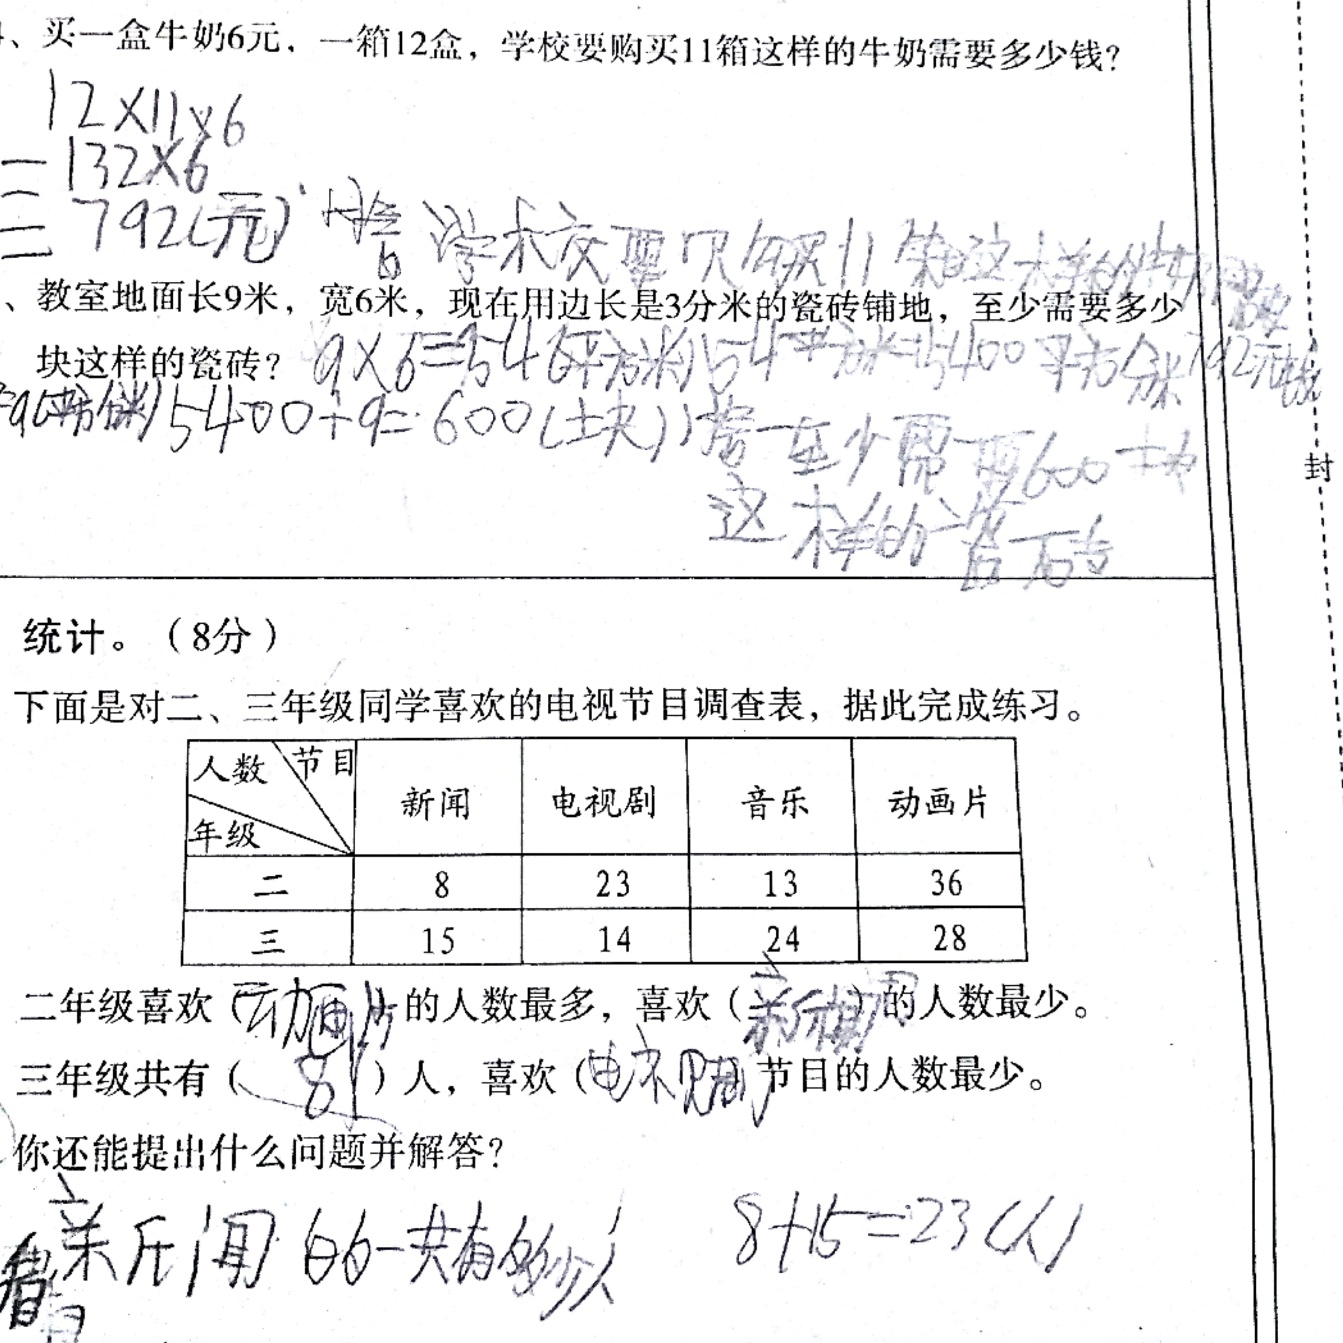 、买一盒牛奶6元，一箱12盒，学校要购买11箱这样的牛奶需要多少钱？
12×11×6
=132×6
=792(元) 答学校要购买11箱这样的牛奶
792元钱
、教室地面长9米，宽6米，现在用边长是3分米的瓷砖铺地，至少需要多少
块这样的瓷砖？ 9×6=54(平方米) 54平方米=5400平方分米
=9(平方分米) 5400÷9=600(块) 答至少需要600块
这样的瓷砖
封
统计。（8分）
下面是对二、三年级同学喜欢的电视节目调查表，据此完成练习。
人数 节目 年级 新闻 电视剧 音乐 动画片
二 8 23 13 36
三 15 14 24 28
二年级喜欢（动画片）的人数最多，喜欢（新闻）的人数最少。
三年级共有（81）人，喜欢（电视剧）节目的人数最少。
你还能提出什么问题并解答？
新闻的一共有多少人 8+15=23(人)